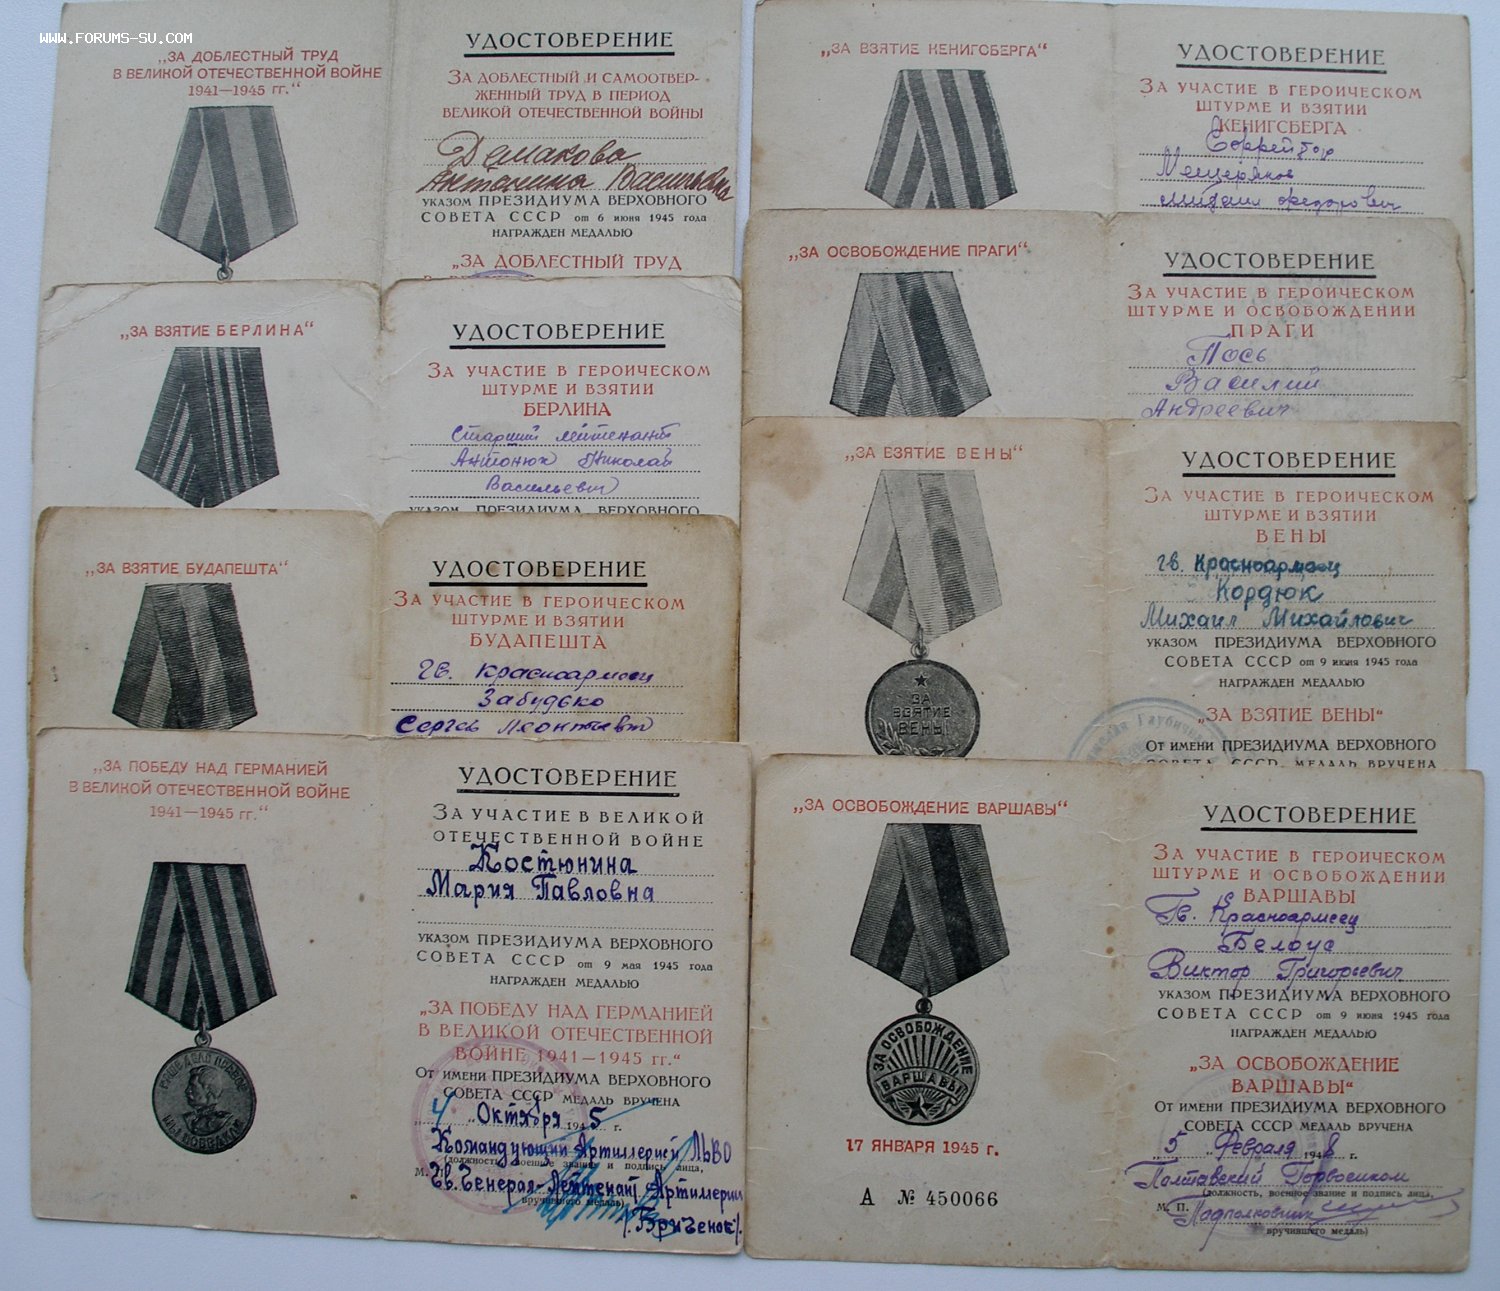 WWW.FORUMS-SU.COM
„ЗА ДОБЛЕСТНЫЙ ТРУД
В ВЕЛИКОЙ ОТЕЧЕСТВЕННОЙ ВОЙНЕ
1941—1945 гг.“
УДОСТОВЕРЕНИЕ
ЗА ДОБЛЕСТНЫЙ И САМООТВЕР-
ЖЕННЫЙ ТРУД В ПЕРИОД
ВЕЛИКОЙ ОТЕЧЕСТВЕННОЙ ВОЙНЫ
Демакова
Антонина Васильевна
УКАЗОМ ПРЕЗИДИУМА ВЕРХОВНОГО
СОВЕТА СССР от 6 июня 1945 года
НАГРАЖДЕН МЕДАЛЬЮ
„ЗА ДОБЛЕСТНЫЙ ТРУД
„ЗА ВЗЯТИЕ БЕРЛИНА“
УДОСТОВЕРЕНИЕ
ЗА УЧАСТИЕ В ГЕРОИЧЕСКОМ
ШТУРМЕ И ВЗЯТИИ
БЕРЛИНА
Старший лейтенант
Антонюк Николай
Васильевич
УКАЗОМ ПРЕЗИДИУМА ВЕРХОВНОГО
„ЗА ВЗЯТИЕ БУДАПЕШТА“
УДОСТОВЕРЕНИЕ
ЗА УЧАСТИЕ В ГЕРОИЧЕСКОМ
ШТУРМЕ И ВЗЯТИИ
БУДАПЕШТА
гв. Красноармеец
Забудько
Сергей Леонтьевич
„ЗА ПОБЕДУ НАД ГЕРМАНИЕЙ
В ВЕЛИКОЙ ОТЕЧЕСТВЕННОЙ ВОЙНЕ
1941—1945 гг.“
НАШЕ ДЕЛО ПРАВОЕ
МЫ ПОБЕДИЛИ
УДОСТОВЕРЕНИЕ
ЗА УЧАСТИЕ В ВЕЛИКОЙ
ОТЕЧЕСТВЕННОЙ ВОЙНЕ
Костюнина
Мария Павловна
УКАЗОМ ПРЕЗИДИУМА ВЕРХОВНОГО
СОВЕТА СССР от 9 мая 1945 года
НАГРАЖДЕН МЕДАЛЬЮ
„ЗА ПОБЕДУ НАД ГЕРМАНИЕЙ
В ВЕЛИКОЙ ОТЕЧЕСТВЕННОЙ
ВОЙНЕ 1941—1945 гг.“
ОТ ИМЕНИ ПРЕЗИДИУМА ВЕРХОВНОГО
СОВЕТА СССР МЕДАЛЬ ВРУЧЕНА
„4“ Октября 1945 г.
Командующий Артиллерией ЛЬВО
(должность, военное звание и подпись лица,
Гв. Генерал-Лейтенант Артиллерии
вручившего медаль)
„ЗА ВЗЯТИЕ КЕНИГСБЕРГА“
УДОСТОВЕРЕНИЕ
ЗА УЧАСТИЕ В ГЕРОИЧЕСКОМ
ШТУРМЕ И ВЗЯТИИ
КЕНИГСБЕРГА
Ефрейтор
Мещеряков
Михаил Федорович
„ЗА ОСВОБОЖДЕНИЕ ПРАГИ“
УДОСТОВЕРЕНИЕ
ЗА УЧАСТИЕ В ГЕРОИЧЕСКОМ
ШТУРМЕ И ОСВОБОЖДЕНИИ
ПРАГИ
Пось
Василий
Андреевич
„ЗА ВЗЯТИЕ ВЕНЫ“
ЗА
ВЗЯТИЕ
ВЕНЫ
УДОСТОВЕРЕНИЕ
ЗА УЧАСТИЕ В ГЕРОИЧЕСКОМ
ШТУРМЕ И ВЗЯТИИ
ВЕНЫ
гв. Красноармеец
Кордюк
Михаил Михайлович
УКАЗОМ ПРЕЗИДИУМА ВЕРХОВНОГО
СОВЕТА СССР от 9 июня 1945 года
НАГРАЖДЕН МЕДАЛЬЮ
„ЗА ВЗЯТИЕ ВЕНЫ“
ОТ ИМЕНИ ПРЕЗИДИУМА ВЕРХОВНОГО
СОВЕТА СССР МЕДАЛЬ ВРУЧЕНА
„ЗА ОСВОБОЖДЕНИЕ ВАРШАВЫ“
ЗА ОСВОБОЖДЕНИЕ
ВАРШАВЫ
17 ЯНВАРЯ 1945 г.
А № 450066
УДОСТОВЕРЕНИЕ
ЗА УЧАСТИЕ В ГЕРОИЧЕСКОМ
ШТУРМЕ И ОСВОБОЖДЕНИИ
ВАРШАВЫ
Гв. Красноармеец
Белоус
Виктор Григорьевич
УКАЗОМ ПРЕЗИДИУМА ВЕРХОВНОГО
СОВЕТА СССР от 9 июня 1945 года
НАГРАЖДЕН МЕДАЛЬЮ
„ЗА ОСВОБОЖДЕНИЕ
ВАРШАВЫ“
ОТ ИМЕНИ ПРЕЗИДИУМА ВЕРХОВНОГО
СОВЕТА СССР МЕДАЛЬ ВРУЧЕНА
„5“ Февраля 1948 г.
Полтавский Горвоенком
(должность, военное звание и подпись лица,
М. П. Подполковник
вручившего медаль)